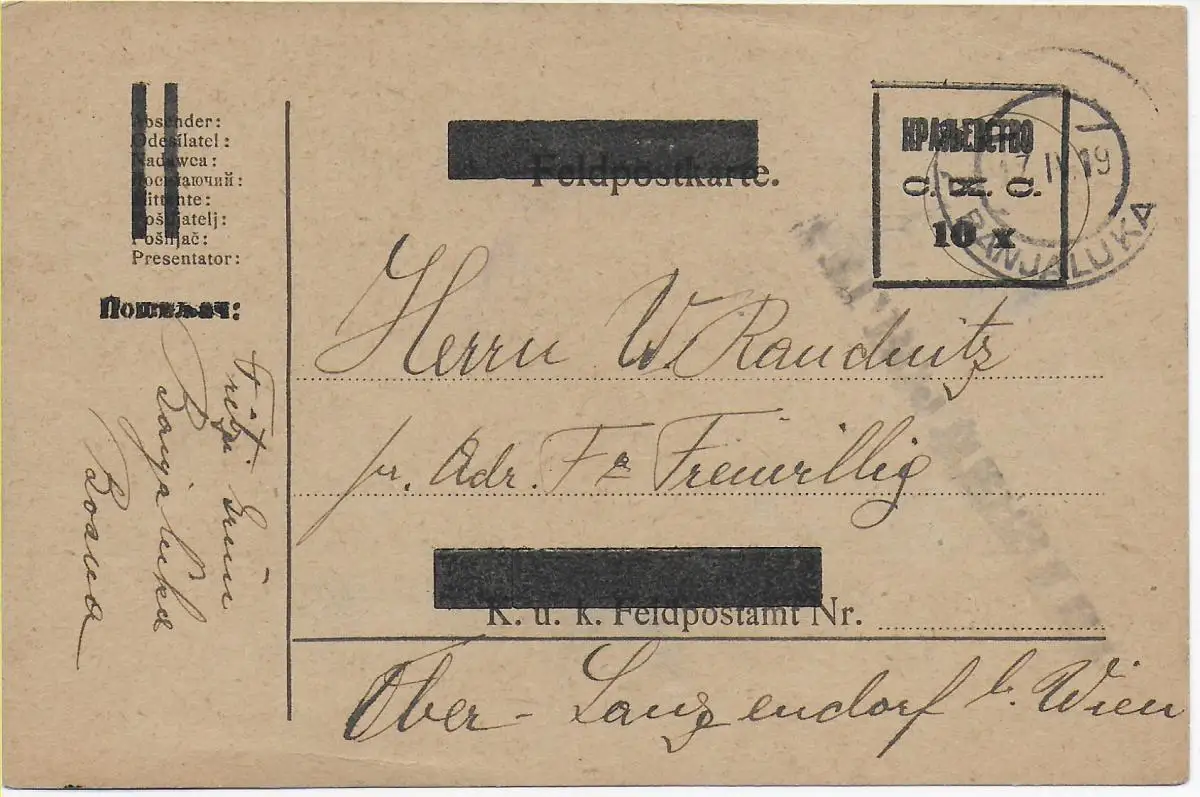 Absender:
Odesílatel:
Nadawca:
Посилаючий:
Mittente:
Pošiljatelj:
Pošiljač:
Presentator:
Пошељач:
Fritz Grün
Banjaluka
Bosna
Feldpostkarte.
КРАЉЕВСТВО
С. Х. С.
10 х
17. IV. 19
BANJALUKA
Herrn W. Raudnitz
pr. Adr. Fr Freiwillig
K. u. k. Feldpostamt Nr.
Ober-Lanzendorf b. Wien